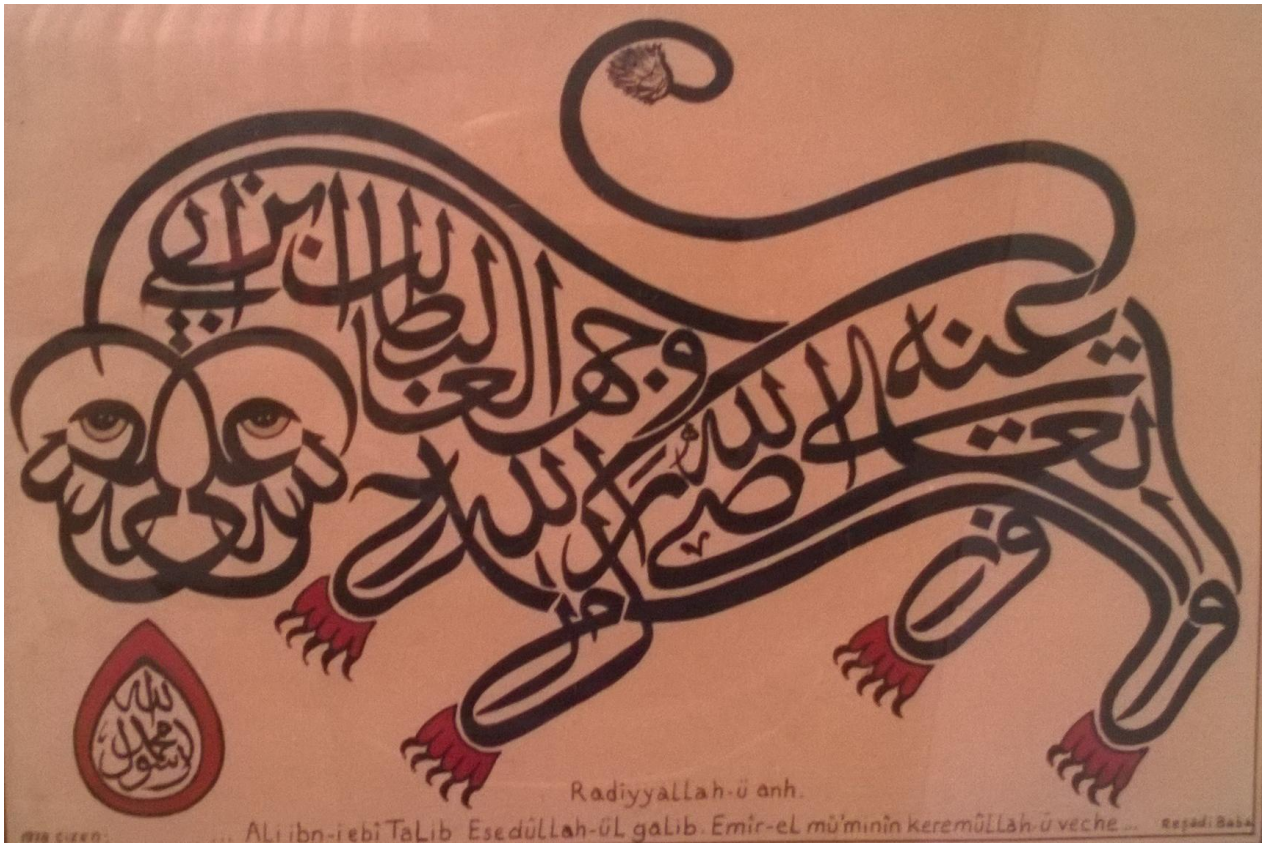 علي
ابن ابي طالب
اسد الله الغالب
كرم الله وجهه
رضي الله تعالى عنه
محمد رسول الله
Radiyyallah-ü anh.
... Ali ibn-i ebî TaLib Esedûllah-üL galib. Emîr-el mü'mınîn keremûllah-ü veche ... Reşadi Baba